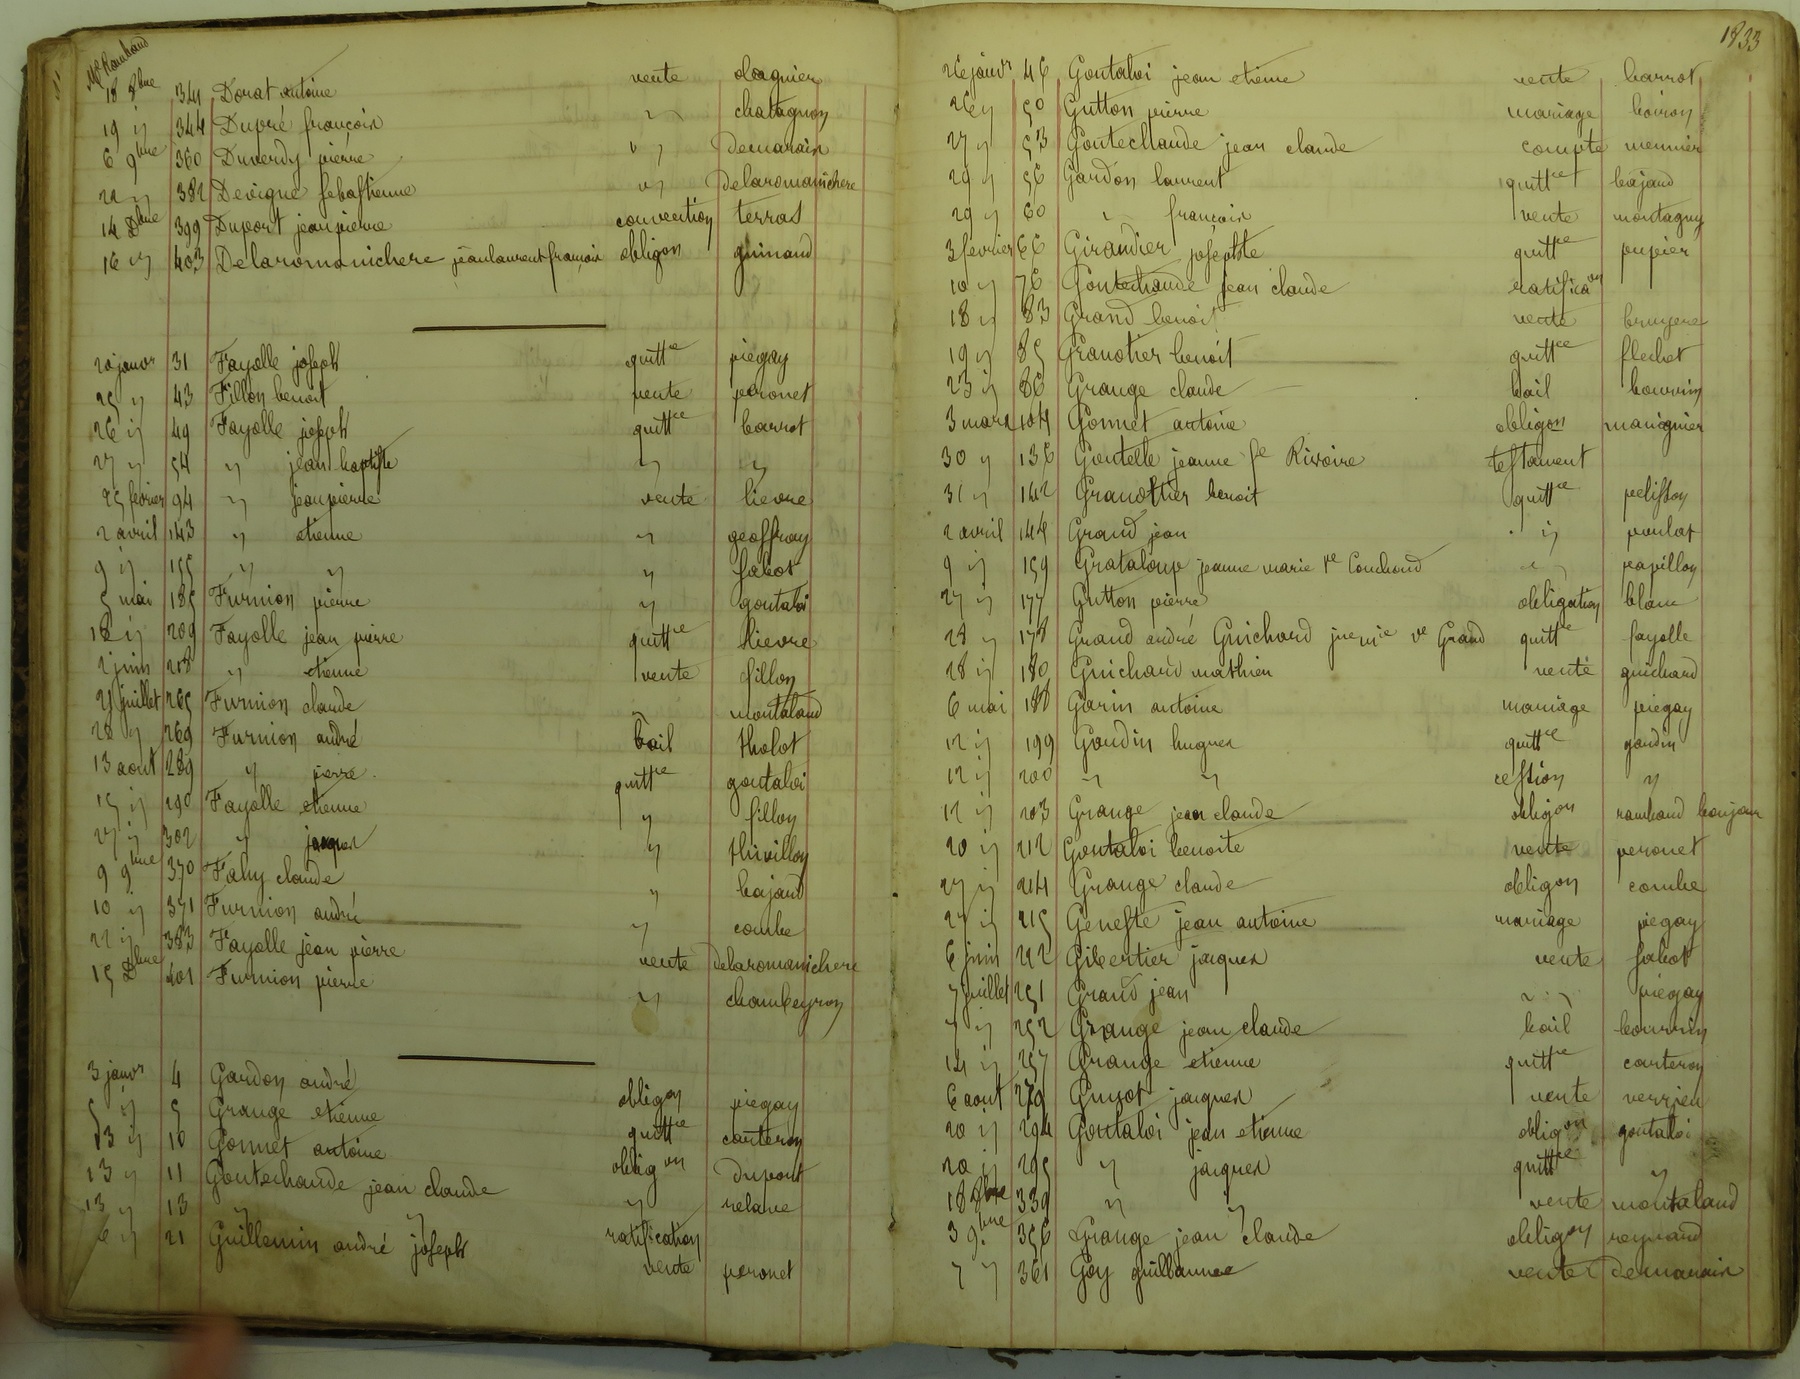 Me Rambaud
18 8bre 341 Dorat antoine vente dagnier
19 " 344 Dupré françois " chatagnon
6 9bre 360 Duverdy pierre " demarain
22 " 382 Devigne sebastienne " Delaromanichere
14 Dbre 399 Duport jean pierre convention terras
16 " 403 Delaromanichere jean laurent françois obligon guinand
20 janvr 31 Fayolle joseph quittce piegay
25 " 43 Fillon benoit vente peronet
26 " 49 Fayolle joseph quittce barrot
27 " 54 " jean baptiste " "
25 fevrier 94 " jean pierre vente lievre
2 avril 143 " etienne " geoffray
9 " 155 " " " fabot
5 mai 185 Furnion pierre " goutaloi
18 " 209 Fayolle jean pierre quittce lievre
2 juin 208 " etienne vente fillon
21 juillet 265 Furnion claude " montaland
28 " 269 Furnion andré bail tholot
13 aout 289 " pierre quittce goutaloi
15 " 290 Fayolle etienne " fillon
27 " 302 " jacques " thivillon
9 9bre 370 Fahy claude " bajard
10 " 371 Furnion andré " combe
22 " 383 Fayolle jean pierre vente Delaromanichere
15 Dbre 401 Furnion pierre " chambeyron
3 janvr 4 Gardon andré obligon piegay
5 " 5 Grange etienne quittce couteron
13 " 10 Gonnet antoine obligon Dupont
13 " 11 Goutechaude jean claude " relave
13 " 13 " " ratification
6 " 21 Guillemin andré joseph vente peronet
1833
26 janvr 46 Goutaloi jean etienne vente barrot
26 " 50 Gutton pierre mariage boiron
27 " 53 Goutechaude jean claude compte meunier
29 " 56 Gardon laurent quittce bajard
29 " 60 " françois vente montagny
3 fevrier 66 Girandier josephte quittce pupier
10 " 76 Goutechaude jean claude ratificaon
18 " 83 Grand benoit vente bruyere
19 " 85 Granotier benoit quittce flechet
23 " 86 Grange claude bail bourrin
3 mars 104 Gonnet antoine obligon manignier
30 " 136 Goutelle jeanne fe Rivoire testament
31 " 142 Granottier benoit quittce pelisson
2 avril 144 Grand jean " poulat
9 " 159 Grataloup jeanne marie ve Couchoud " papillon
27 " 177 Gutton pierre obligation blanc
28 " 178 Grand andré Guichard jne mie ve Grand quittce fayolle
28 " 180 Guichard mathieu vente guichard
6 mai 188 Garin antoine mariage piegay
12 " 199 Goudin hugues quittce goudin
12 " 200 " " cession "
12 " 203 Grange jean claude obligon rambaud bonjour
20 " 212 Goutaloi benoite vente peronet
27 " 214 Grange claude obligon combe
27 " 215 Geneste jean antoine mariage piegay
6 juin 242 Gibertier jacques vente fabot
7 juillet 251 Grand jean " piegay
7 " 252 Grange jean claude bail bourrin
14 " 257 Grange etienne quittce couteron
6 aout 279 Guyot jacques vente verrieu
20 " 294 Goutaloi jean etienne obligon goutaloi
20 " 295 " jacques quittce "
18 8bre 339 " " vente montaland
3 9bre 356 Grange jean claude obligon reynaud
7 " 361 Goy guillaume vente demarain